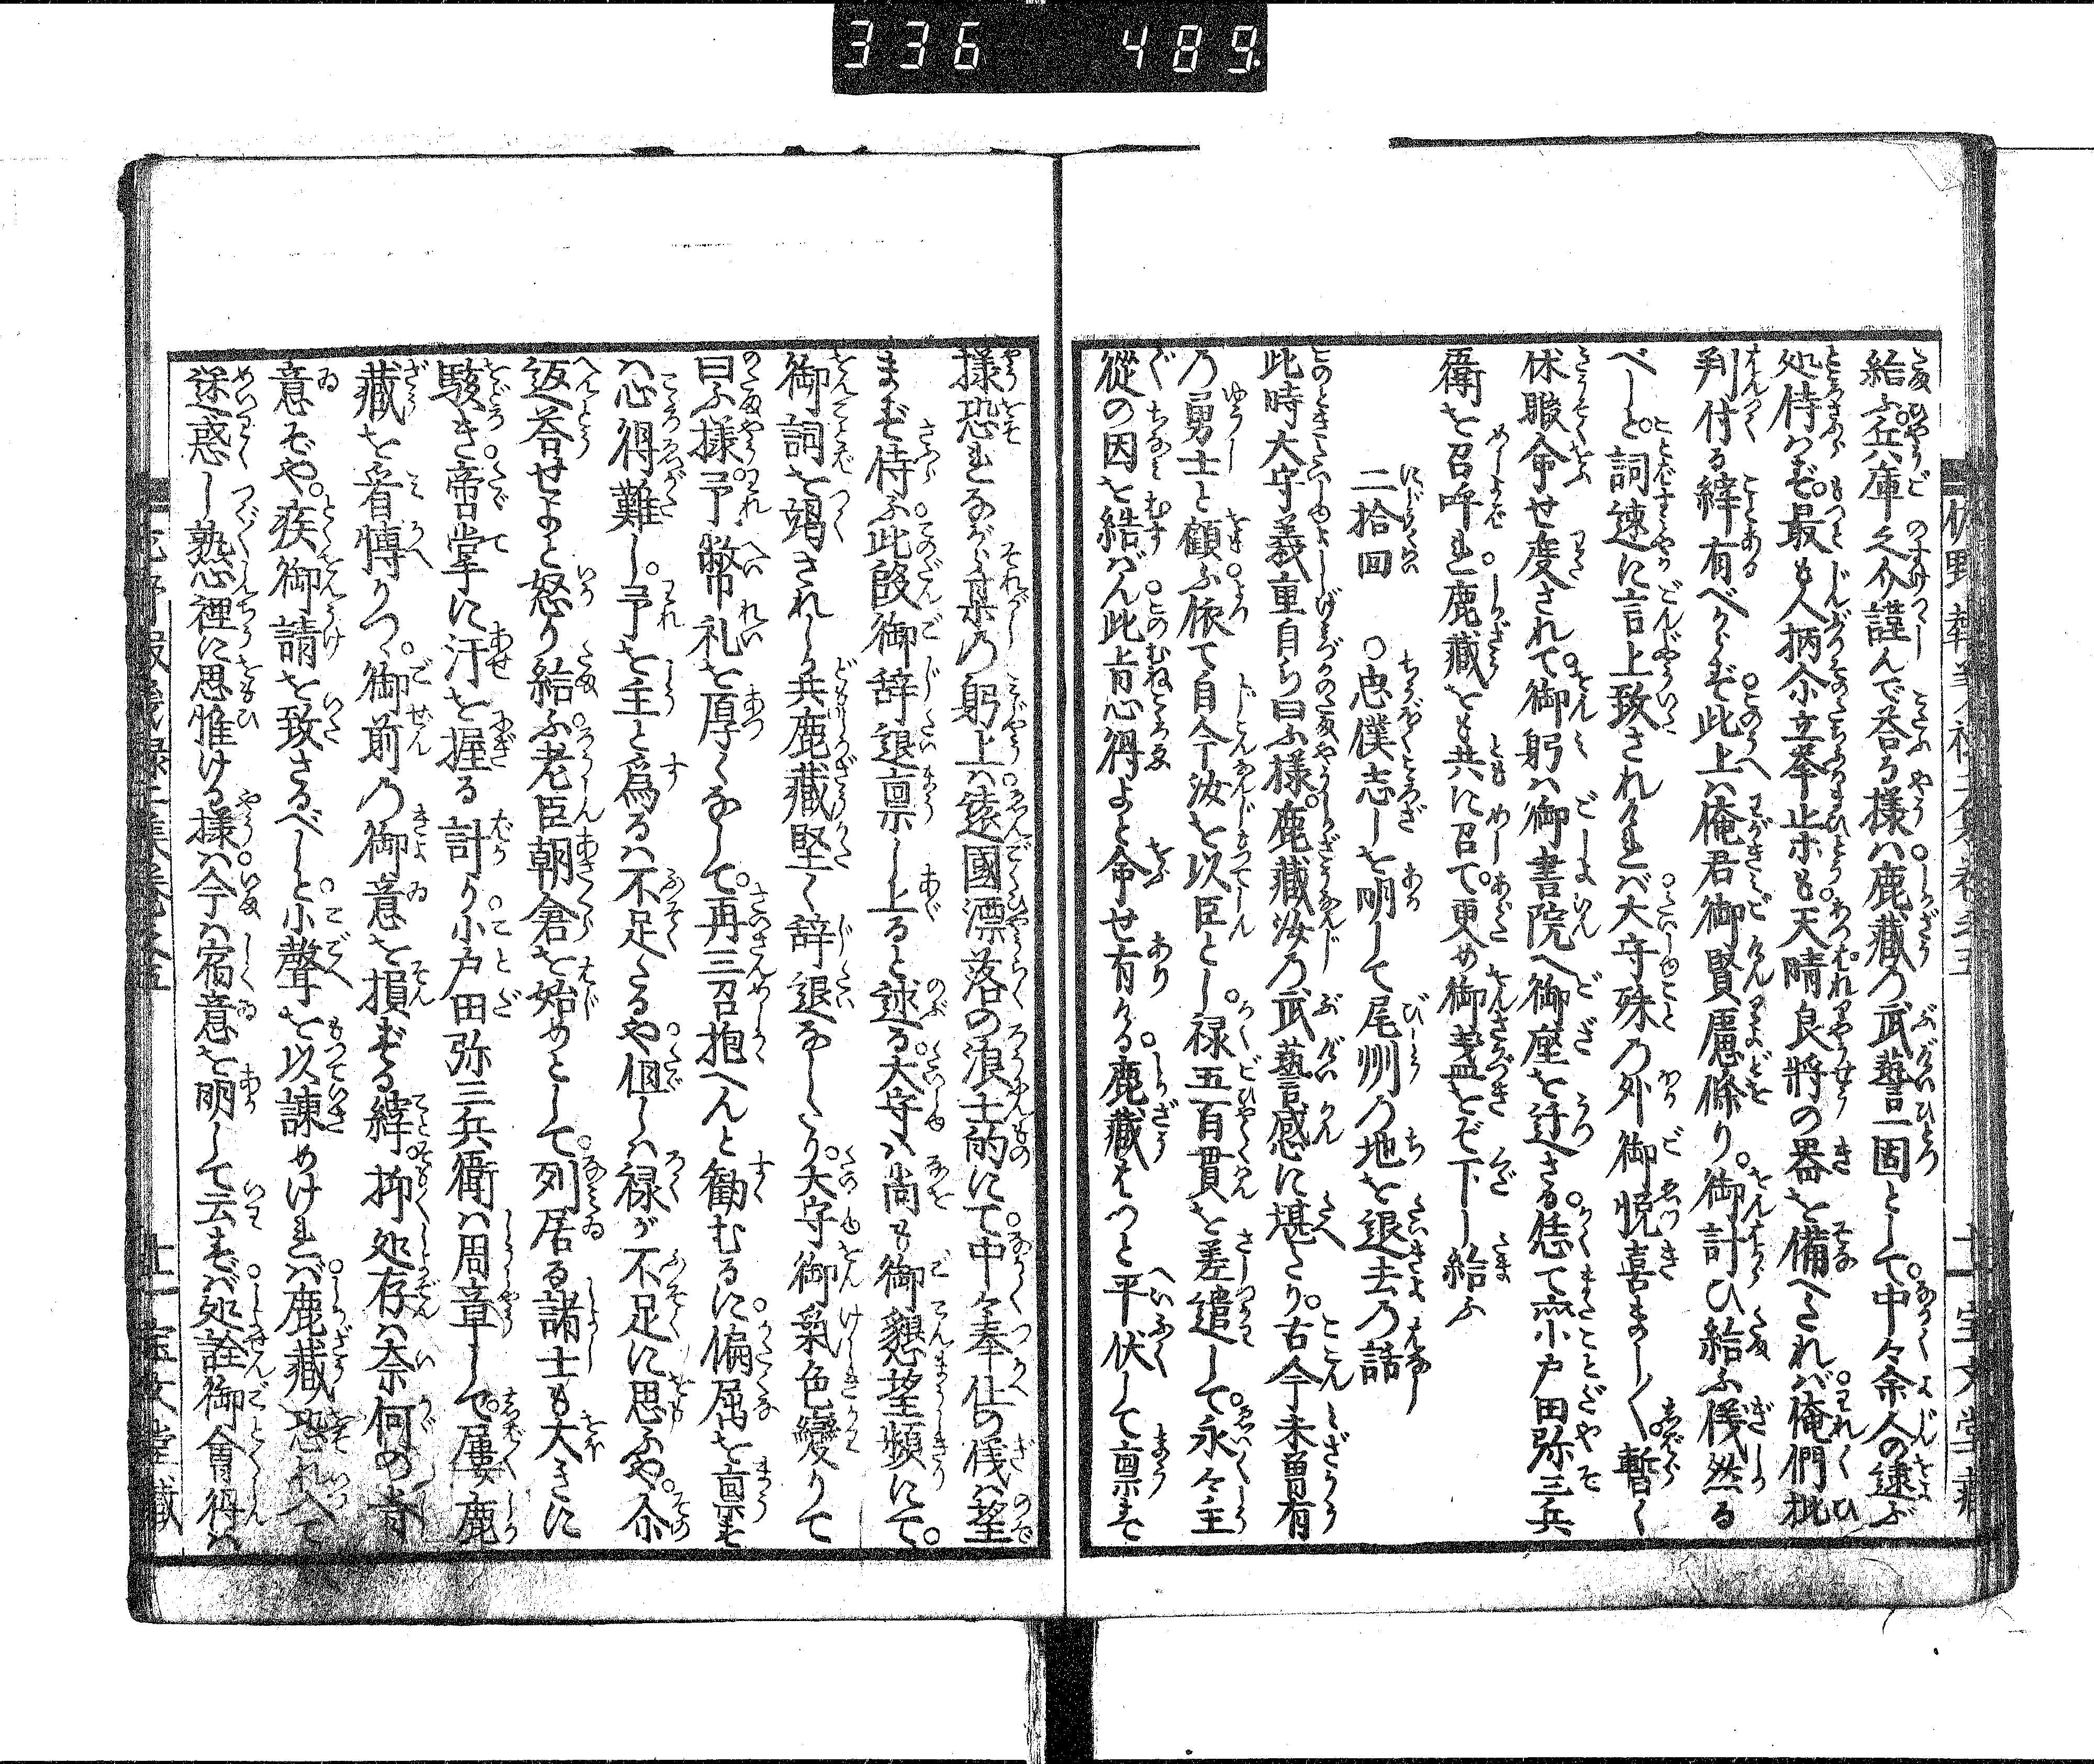 336 489
給ふ。兵庫之介謹んで荅る様ハ。鹿藏乃武藝一固として。中々余人の逮ぶ
処侍はず。最も人柄尒立挙止尒も。天晴良將の器を備へされバ。俺們批
判付る縡有べからず。此上ハ俺君御賢慮候り。御計ひ給ふ儀然る
べしと。詞速に言上致されけれバ。大守殊乃外御悦喜まし〱。暫く
休暇命せ度されて。御躬ハ御書院へ御座を迁さる。恁て亦小戸田弥三兵
衞を召呼れ。鹿藏をも共に召て。更め御盞をぞ下し給ふ
二拾回　○忠僕志しを明して尾州乃地を退去乃話
此時大守義重自ら曰ふ様。鹿藏汝乃武藝感に堪たり。古今未曽有
乃勇士と顧ふ。依て自今汝を以臣とし。禄五百貫を差遣して。永々主
從の因を結バん。此㫖心得よと命せ有ける。鹿藏はつと平伏して禀す
様。恐れながら某乃躬上ハ。遠國漂落の浪士的にて。中々奉仕の儀ハ望
まず侍ふ。此段御辞退禀し上ると述る。大守ハ尚も御懇望頻にて。
御詞を竭されしか共。鹿藏堅く辞退なしたり。大守御氣色變りて
曰ふ様。予幣礼を厚くなして。再三召抱へんと勧むるに。偏屈を禀す
ハ心得難し。予を主と爲るハ不足たるや。但しハ禄が不足に思ふや。尒
返荅せよと怒り給ふ。老臣朝倉を始めとして。列居る諸士も大きに
駭き。啻掌に汗を握る計り。小戸田弥三兵衞ハ周章して。屢鹿
藏を看愽りつ。御前乃御意を損ずる縡。抑処存ハ奈何の㫖
意ぞや。疾御請を致さるべしと。小聲を以諫めけれバ。鹿藏恐れ入て
迷惑し。熟心裡に思惟ける様。今ハ宿意を明して云ずバ。処詮御會得ハ